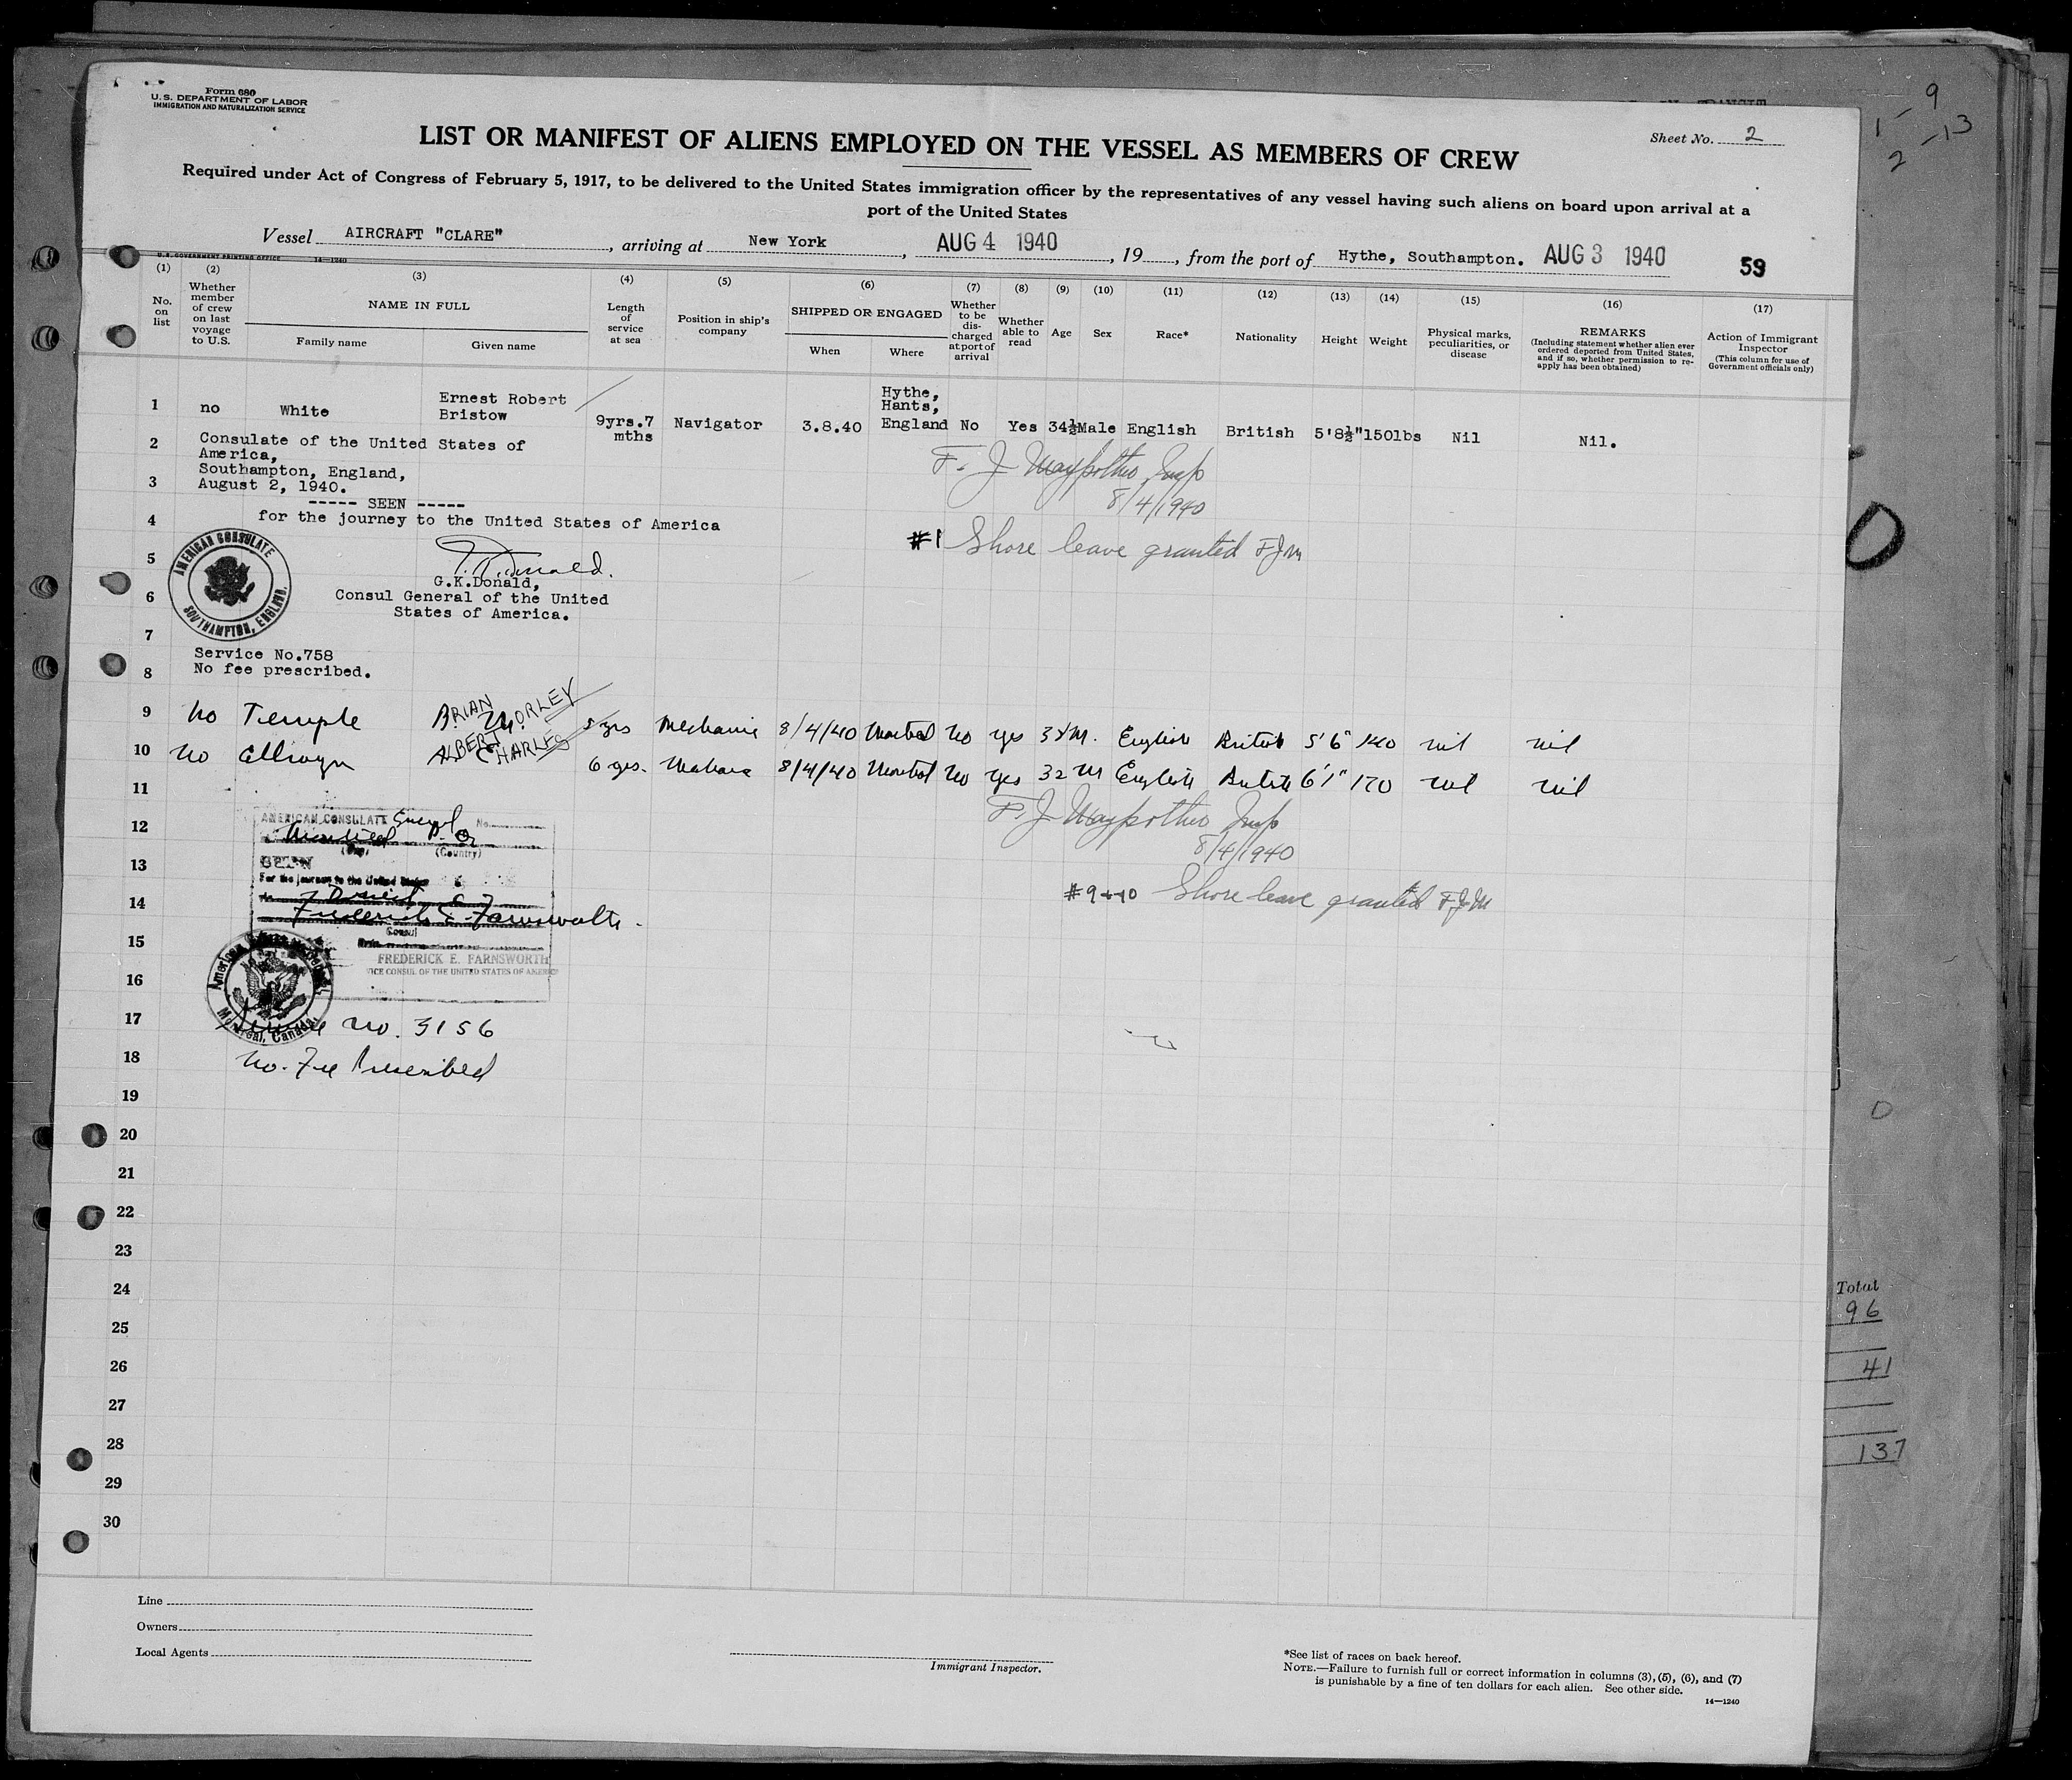 Form 680
U. S. DEPARTMENT OF LABOR
IMMIGRATION AND NATURALIZATION SERVICE
Sheet No. 2
LIST OR MANIFEST OF ALIENS EMPLOYED ON THE VESSEL AS MEMBERS OF CREW
Required under Act of Congress of February 5, 1917, to be delivered to the United States immigration officer by the representatives of any vessel having such aliens on board upon arrival at a
port of the United States
Vessel AIRCRAFT "CLARE", arriving at New York, AUG 4 1940, 19, from the port of Hythe, Southampton. AUG 3 1940
59
U. S. GOVERNMENT PRINTING OFFICE 14—1240
(1) No. on list
(2) Whether member of crew on last voyage to U.S.
(3) NAME IN FULL
Family name
Given name
(4) Length of service at sea
(5) Position in ship's company
(6) SHIPPED OR ENGAGED
When
Where
(7) Whether to be discharged at port of arrival
(8) Whether able to read
(9) Age
(10) Sex
(11) Race*
(12) Nationality
(13) Height
(14) Weight
(15) Physical marks, peculiarities, or disease
(16) REMARKS
(Including statement whether alien ever ordered deported from United States, and if so, whether permission to re-apply has been obtained)
(17) Action of Immigrant Inspector
(This column for use of Government officials only)
1 no White Ernest Robert Bristow 9yrs.7 mths Navigator 3.8.40 Hythe, Hants, England No Yes 34½ Male English British 5'8½" 150lbs Nil Nil.
2 Consulate of the United States of
America,
Southampton, England,
3 August 2, 1940.
----- SEEN -----
4 for the journey to the United States of America
F. J. Insp
8/4/1940
#1 Shore leave granted FJM
5
AMERICAN CONSULATE
SOUTHAMPTON, ENGLAND.
G.K.Donald,
6 Consul General of the United
States of America.
7
Service No.758
8 No fee prescribed.
9 No Temple BRIAN MORLEY 5 yrs Mechanic 8/4/40 Montreal No yes M. English British 5'6" 140 nil nil
10 No ALBERT CHARLES 6 yrs. 8/4/40 Montreal No yes 32 M English British 6'1" 170 nil nil
11
F. J. Insp
8/4/1940
12 AMERICAN CONSULATE General No.
Montreal
(City) (Country)
13 SEEN
For the journey to the United States
14
#9+10 Shore leave granted FJM
Frederick E. Farnsworth.
Consul
15
FREDERICK E. FARNSWORTH
VICE CONSUL OF THE UNITED STATES OF AMERICA
16
American
Montreal, Canada.
17 Service No. 3156
18 No. Fee Prescribed
19
20
21
22
23
24
25
26
27
28
29
30
Line
Owners
Local Agents
Immigrant Inspector.
*See list of races on back hereof.
NOTE.—Failure to furnish full or correct information in columns (3), (5), (6), and (7)
is punishable by a fine of ten dollars for each alien. See other side.
14—1240
1 - 9
2 - 13
Total
96
41
137